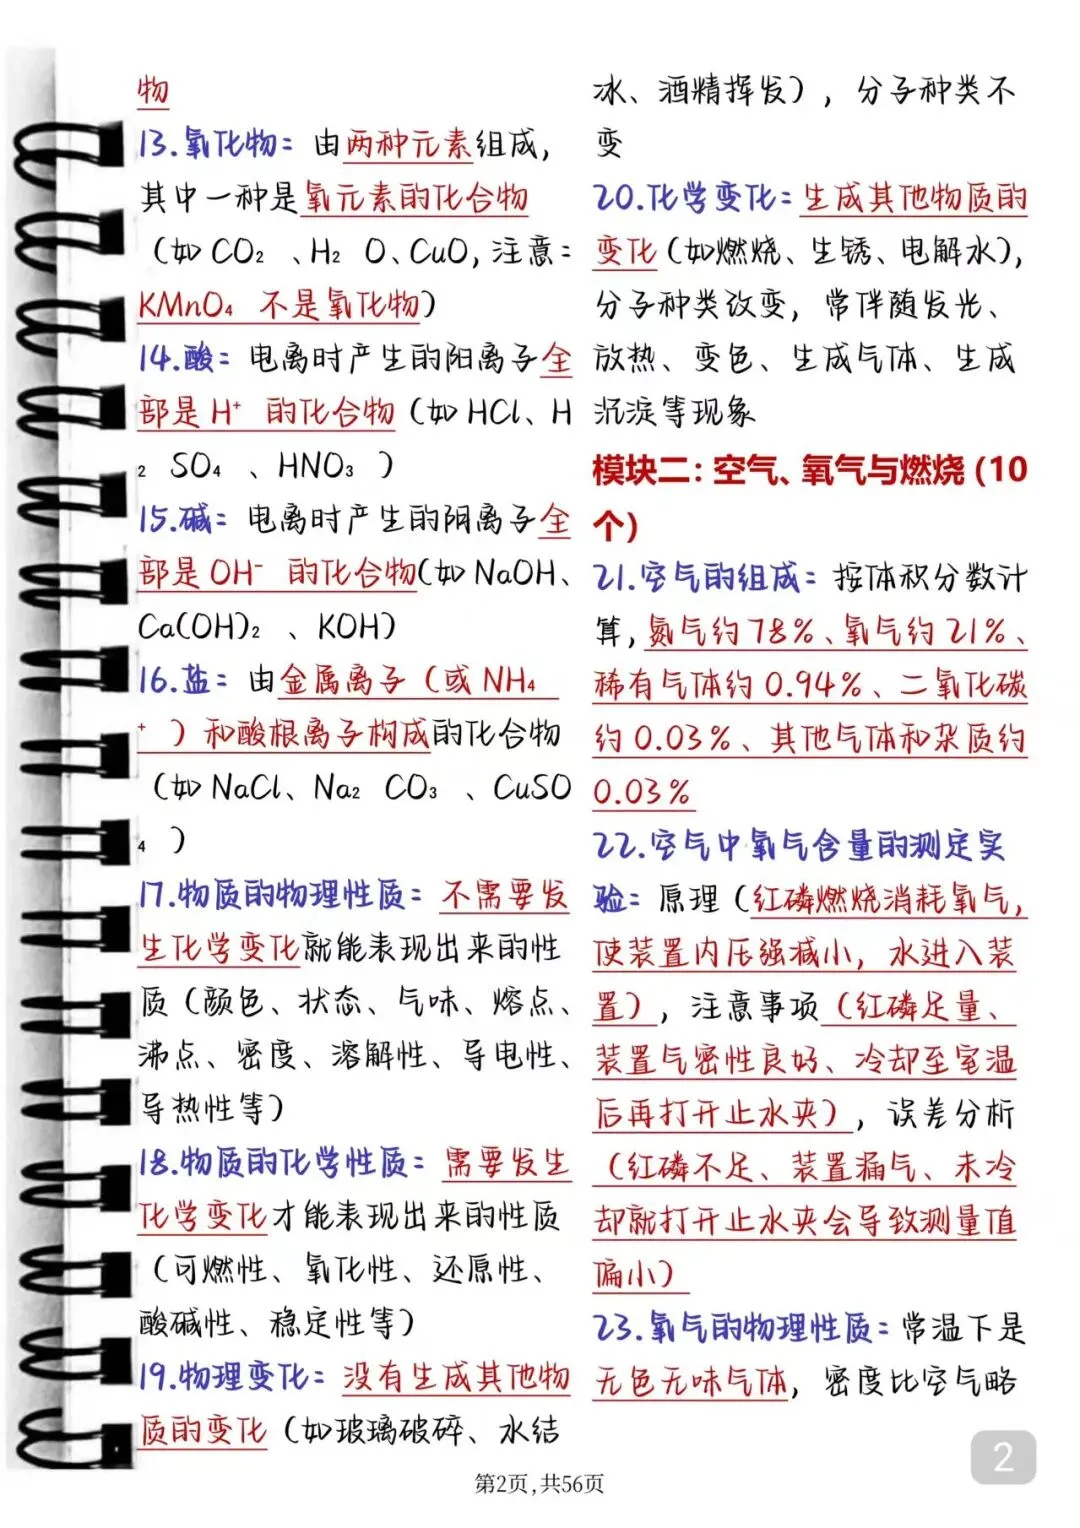 物
13.氧化物：由两种元素组成，
其中一种是氧元素的化合物
（如CO₂ 、H₂ O、CuO，注意：
KMnO₄ 不是氧化物）
14.酸：电离时产生的阳离子全
部是H⁺ 的化合物（如HCl、H
₂ SO₄ 、HNO₃ ）
15.碱：电离时产生的阴离子全
部是OH⁻ 的化合物（如NaOH、
Ca(OH)₂ 、KOH）
16.盐：由金属离子（或NH₄
⁺ ）和酸根离子构成的化合物
（如NaCl、Na₂ CO₃ 、CuSO
₄ ）
17.物质的物理性质：不需要发
生化学变化就能表现出来的性
质（颜色、状态、气味、熔点、
沸点、密度、溶解性、导电性、
导热性等）
18.物质的化学性质：需要发生
化学变化才能表现出来的性质
（可燃性、氧化性、还原性、
酸碱性、稳定性等）
19.物理变化：没有生成其他物
质的变化（如玻璃破碎、水结
冰、酒精挥发），分子种类不
变
20.化学变化：生成其他物质的
变化（如燃烧、生锈、电解水），
分子种类改变，常伴随发光、
放热、变色、生成气体、生成
沉淀等现象
模块二：空气、氧气与燃烧（10
个）
21.空气的组成：按体积分数计
算，氮气约78%、氧气约21%、
稀有气体约0.94%、二氧化碳
约0.03%、其他气体和杂质约
0.03%
22.空气中氧气含量的测定实
验：原理（红磷燃烧消耗氧气，
使装置内压强减小，水进入装
置），注意事项（红磷足量、
装置气密性良好、冷却至室温
后再打开止水夹），误差分析
（红磷不足、装置漏气、未冷
却就打开止水夹会导致测量值
偏小）
23.氧气的物理性质：常温下是
无色无味气体，密度比空气略
2
第2页,共56页